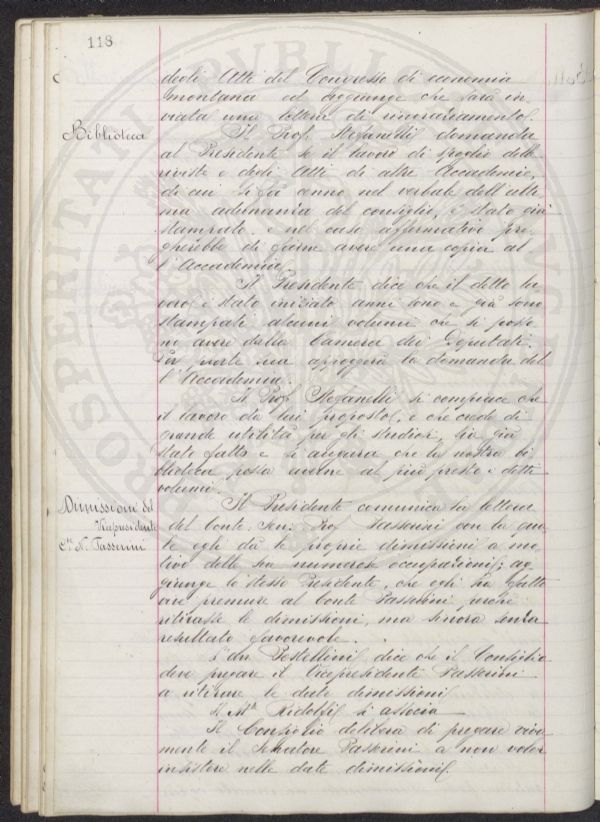 118
degli Atti del Congresso di economia
montana ed aggiunge che sarà in-
viata una lettera di ringraziamento.
Biblioteca
Il Prof. Stefanelli domanda
al Presidente se il lavoro di spoglio delle
riviste e degli Atti di altre Accademie,
di cui si fa cenno nel verbale dell'ulti-
ma adunanza del consiglio, è stato già
stampato e nel caso affermativo pre-
gherebbe di farne avere una copia al
l'Accademia.
Il Presidente dice che il detto la
voro è stato iniziato anni sono e già sono
stampati alcuni volumi che si posso
no avere dalla Camera dei Deputati.
Per parte sua appoggerà la domanda del
l'Accademia.
Il Prof. Stefanelli si compiace che
il lavoro da lui proposto, e che crede di
grande utilità per gli studiosi, sia già
stato fatto e si augura che la nostra bi
blioteca possa avere al più presto i detti
volumi.
Dimissioni del
Vicepresidente
Cte N. Passerini
Il Presidente comunica la lettera
del Conte Sen. Prof Passerini con la qua
le egli dà le proprie dimissioni a mo
tivo delle sue numerose occupazioni; ag
giunge lo stesso Presidente, che egli ha fatto
vive premure al Conte Passerini perché
ritirasse le dimissioni, ma sinora senza
resultato favorevole.
L'avv. Pestellini dice che il Consiglio
deve pregare il Vicepresidente Passerini
a ritirare le date dimissioni.
Il Mse Ridolfi si associa
Il Consiglio delibera di pregare viva
mente il Senatore Passerini a non voler
insistere nelle date dimissioni.